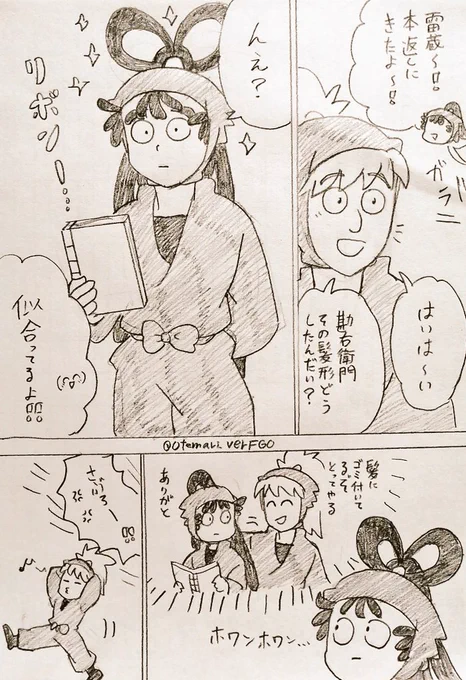 雷蔵〜!!
本返しに
きたよ〜!!
ガラ
はいは〜い
勘右衛門
その髪形どう
したんだい?
んえ?
リボン!...
似合ってるよ!!!!
@otemari verFGO
髪に
ゴミ付いて
るぞ
とってやる
ありがと
ホワンホワン...
さぶろー
!!